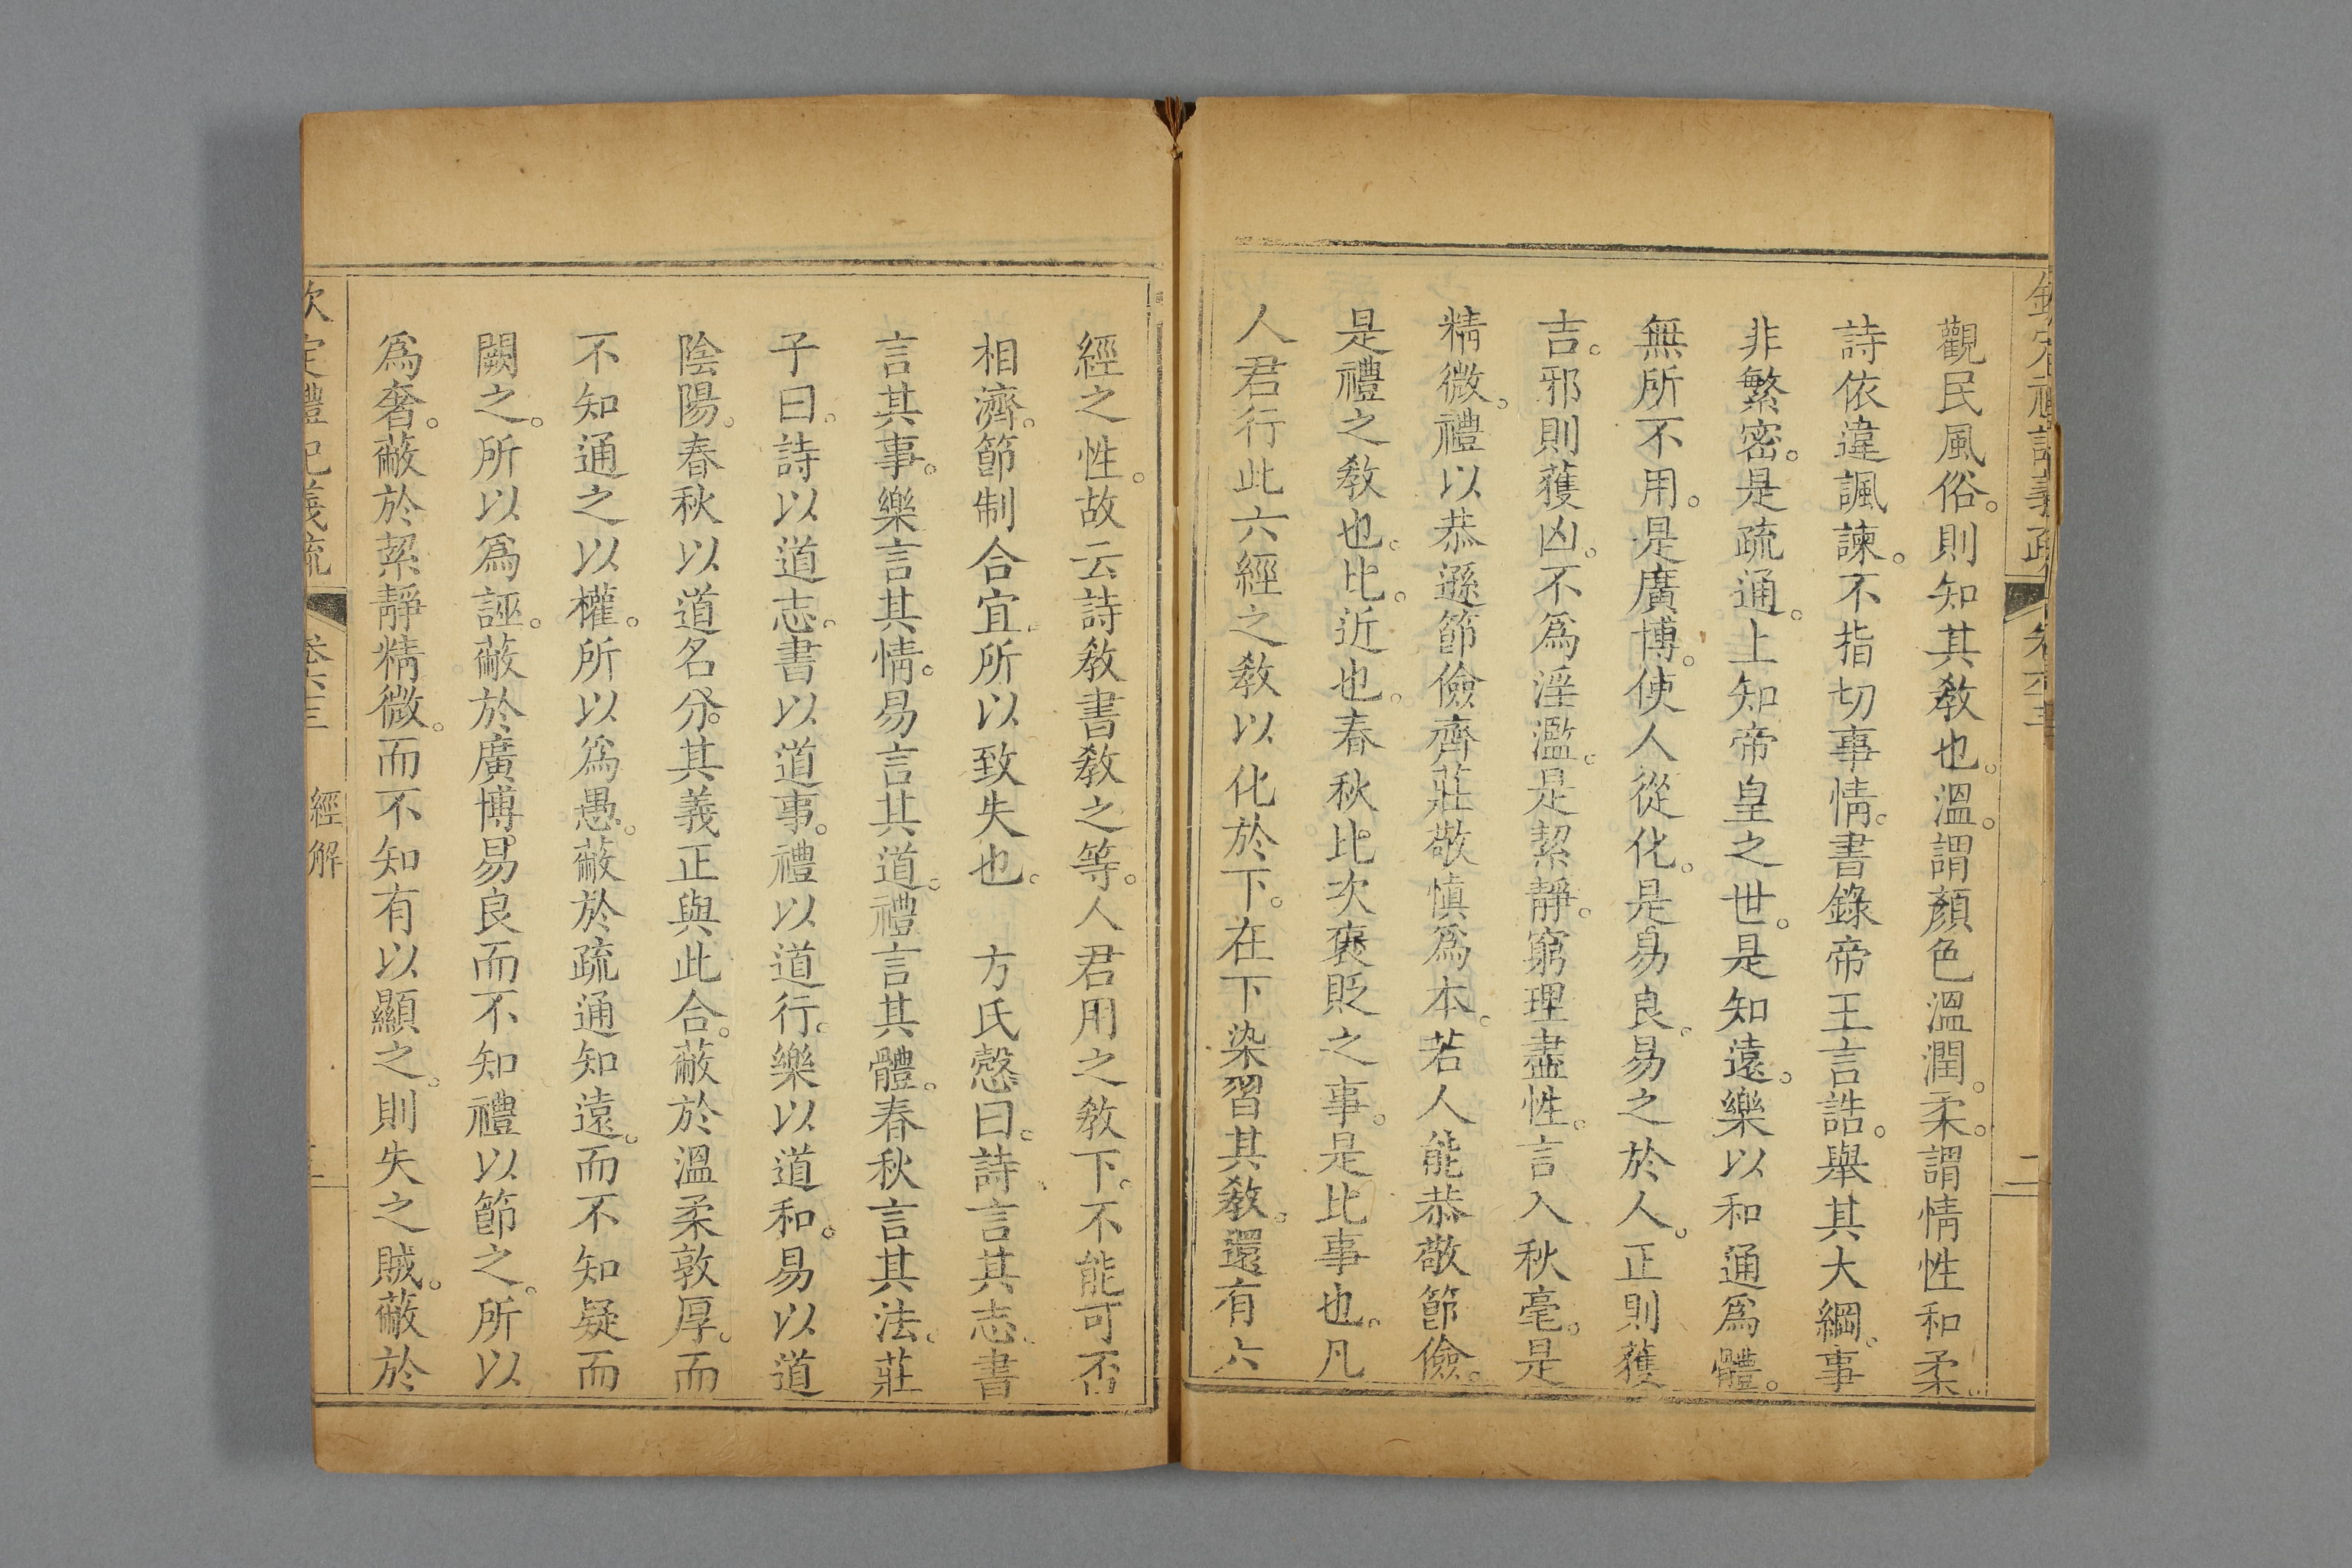 欽定禮記義疏 卷六十三 二
觀民風俗。則知其敎也。溫。謂顏色溫潤。柔。謂情性和柔
詩依違諷諫。不指切事情。書錄帝王言誥。舉其大綱。事
非繁密。是疏通。上知帝皇之世。是知遠。樂以和通爲體。
無所不用。是廣博。使人從化。是易良。易之於人。正則獲
吉。邪則獲凶。不爲淫濫。是絜靜。窮理盡性。言入秋毫。是
精微。禮以恭遜節儉齊莊敬愼爲本。若人能恭敬節儉。
是禮之敎也。比。近也。春秋比次褒貶之事。是比事也。凡
人君行此六經之敎以化於下。在下染習其敎。還有六
經之性。故云詩敎書敎之等。人君用之敎下。不能可否
相濟。節制合宜。所以致失也。 方氏慤曰。詩言其志。書
言其事。樂言其情。易言其道。禮言其體。春秋言其法。莊
子曰。詩以道志。書以道事。禮以道行。樂以道和。易以道
陰陽。春秋以道名分。其義正與此合。蔽於溫柔敦厚。而
不知通之以權。所以爲愚。蔽於疏通知遠。而不知疑而
闕之。所以爲誣。蔽於廣博易良而不知禮以節之。所以
爲奢。蔽於絜靜精微。而不知有以顯之。則失之賊。蔽於
欽定禮記義疏 卷六十三 經解